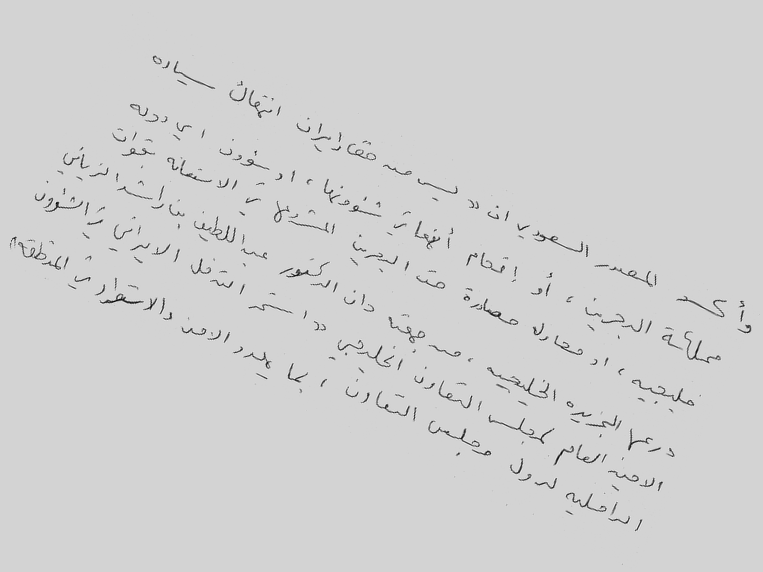 وأكد المصدر السعودي ان « ليس من حق ايران انتهاك سياده
مملكة البحرين ، أو إقحام أنفها في شئونها ، او شؤون اي دوله
خليجيه ، او محاوله مصادرة حق البحرين المشروعها في الاستعانه بقوات
درعها الجزيره الخليجيه ، من جهته دان الدكتور عبداللطيف بن راشد الزياني
الامين العام لمجلس التعاون الخليجي « استمر التدخل الايراني في الشؤون
الداخليه لدول مجلس التعاون ، بما يهدد الامن والاستقرار في المنطقه »